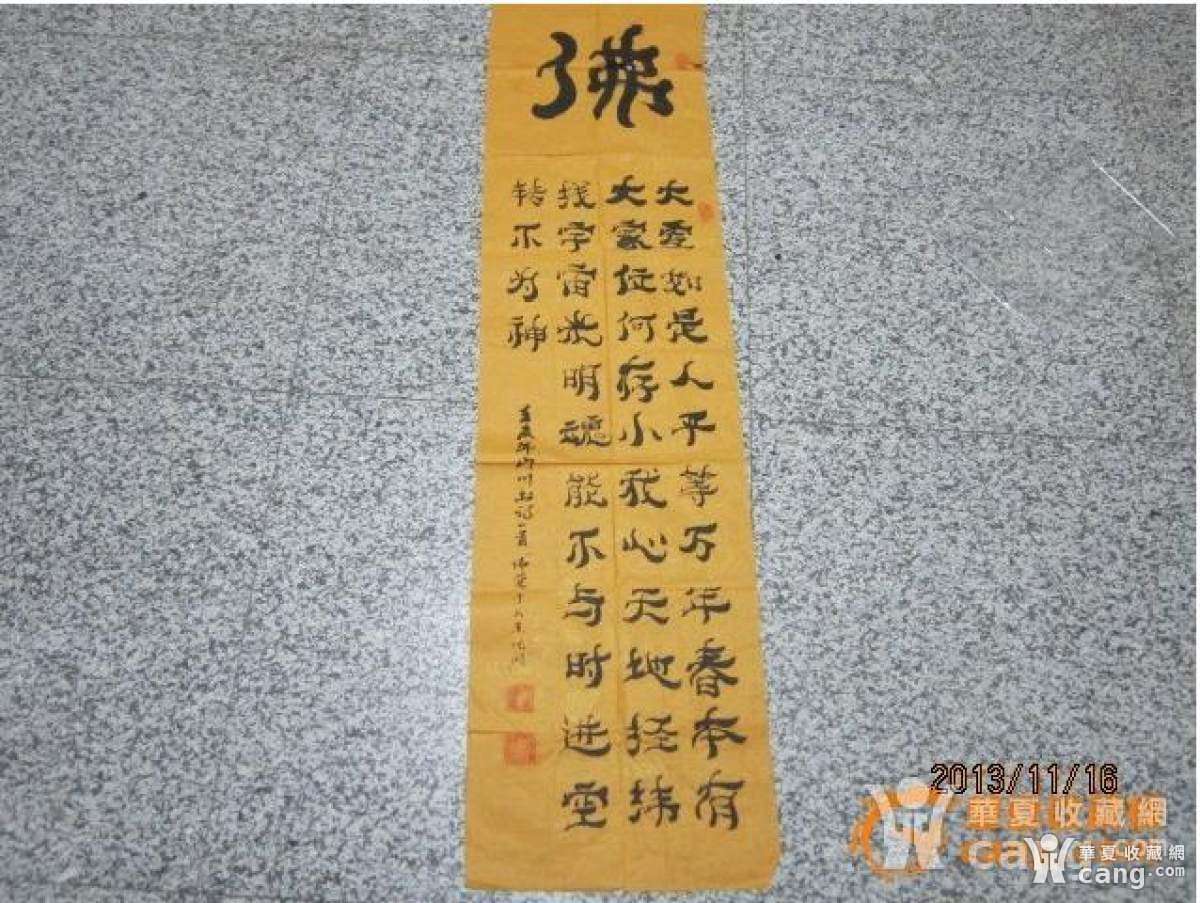 佛
大爱如是人平等万年春本有
大家位何存小我心天地经纬
线宇宙光明魂能不与时进空
转不为神
2013/11/16
華夏收藏網
cang.com
華夏收藏網
cang.com